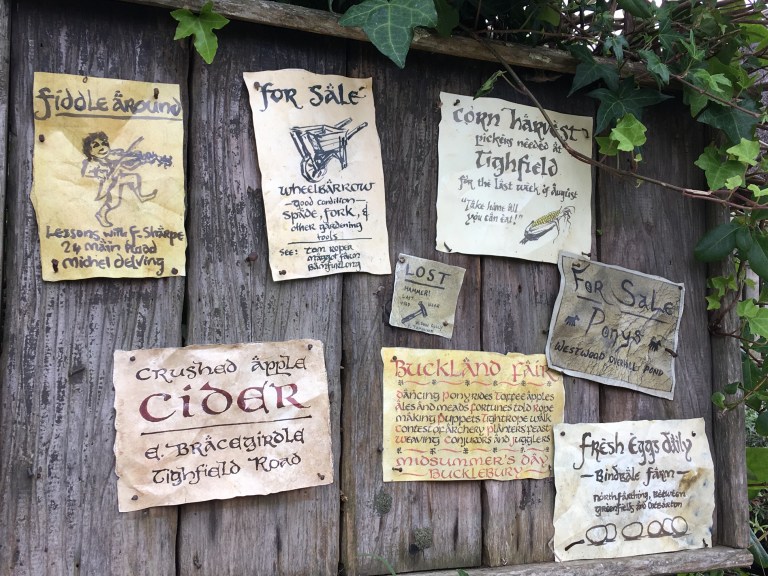 Fiddle Around
Lessons with F. Sharpe
24 Main Road
Michel Delving
For Sale
Wheelbarrow
good condition
Spade, Fork, &
other gardening
tools
See: Tom Roper
Maggot Farm
Bamfurlong
Corn Harvest
pickers needed at
Tighfield
for the last week of August
"Take home all
you can eat!"
Lost
Hammer!
For Sale
Ponys
Westwood
Pond
Crushed Apple
Cider
E. Bracegirdle
Tighfield Road
Buckland Fair
Dancing Pony Rides Toffee Apples
Ales and Meads Fortunes Told Rope
Making Puppets Tightrope Walk
Contest of Archery Planters Feast
Weaving Conjurors and Jugglers
Midsummer's Day
Bucklebury
Fresh Eggs Daily
Bindbale Farm
Northfarthing, Between
Greenfields and Oatbarton